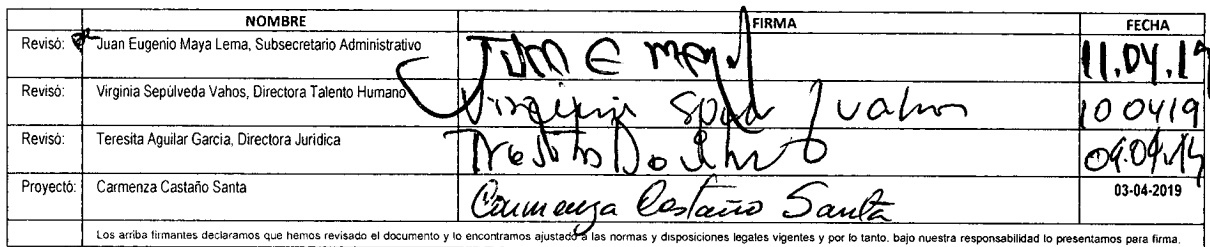 NOMBRE FIRMA FECHA
Revisó: Juan Eugenio Maya Lema, Subsecretario Administrativo Juan E May 11.04.19
Revisó: Virginia Sepúlveda Vahos, Directora Talento Humano Virginia vahos 100419
Revisó: Teresita Aguilar Garcia, Directora Jurídica
Proyectó: Carmenza Castaño Santa Carmenza Castaño Santa 03-04-2019
Los arriba firmantes declaramos que hemos revisado el documento y lo encontramos ajustado a las normas y disposiciones legales vigentes y por lo tanto, bajo nuestra responsabilidad lo presentamos para firma.